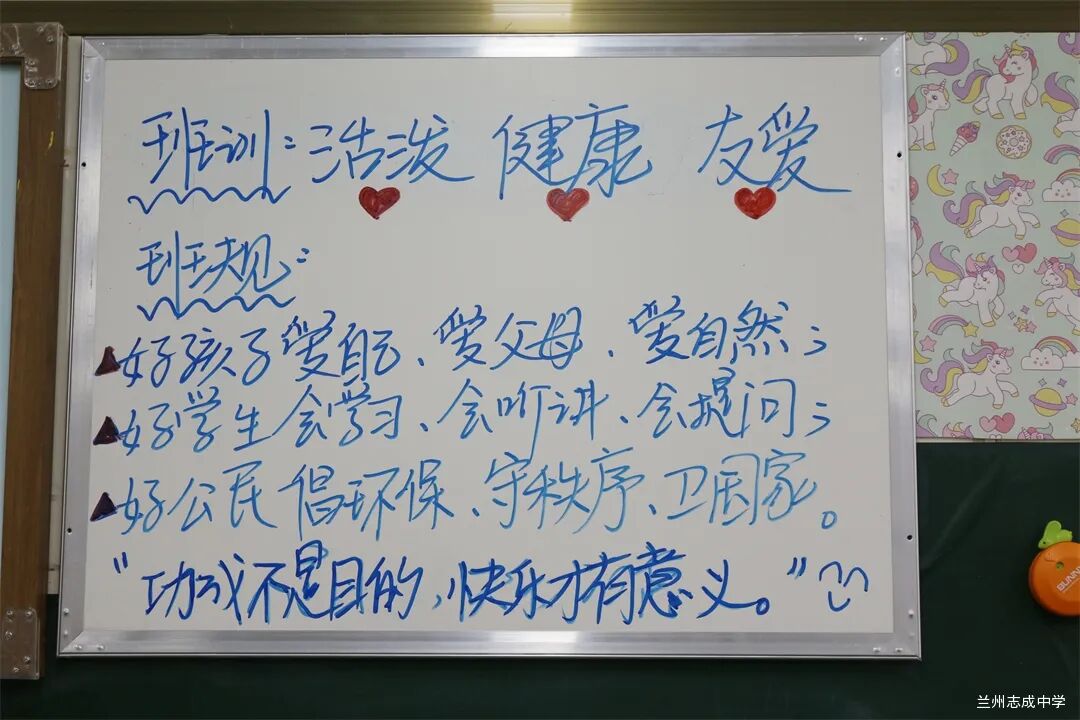 班训：活泼 健康 友爱
班规：
▲好孩子爱自己、爱父母、爱自然；
▲好学生会学习、会听讲、会提问；
▲好公民倡环保、守秩序、卫国家。
“功成不是目的，快乐才有意义。”
BUNNY
兰州志成中学